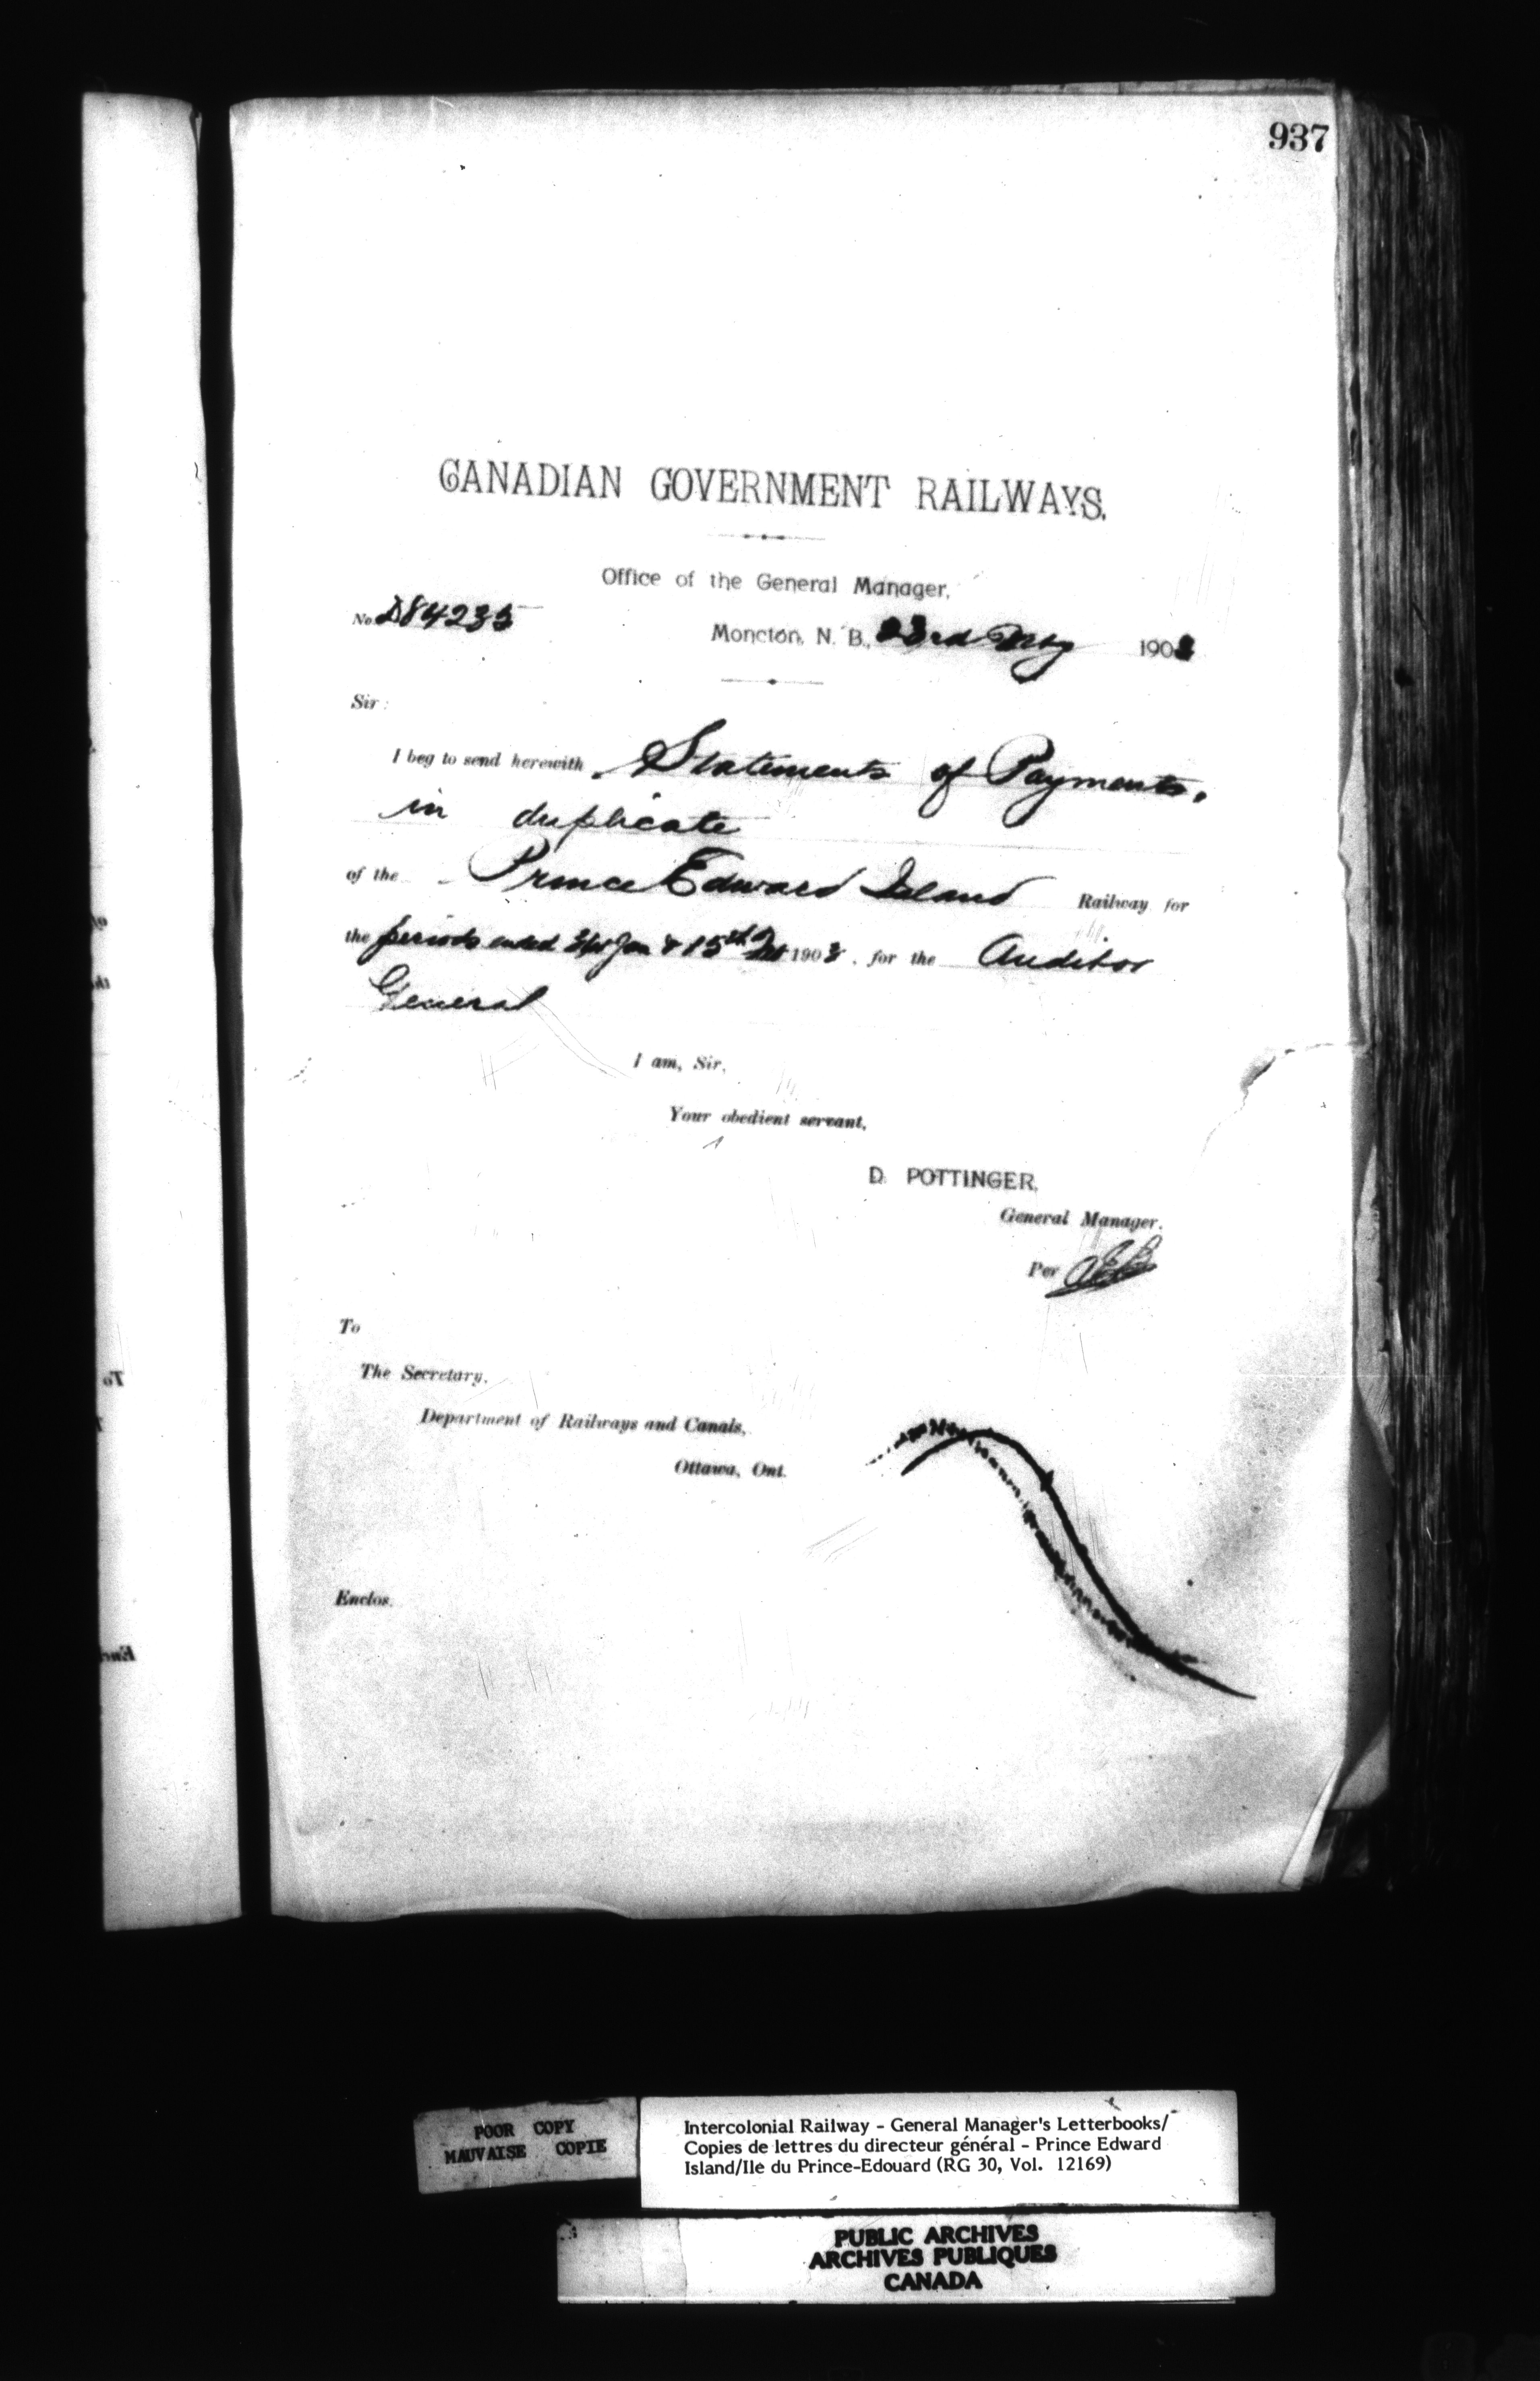 937
CANADIAN GOVERNMENT RAILWAYS.
Office of the General Manager,
No. D84235
Moncton, N. B., 23rd May 1903
Sir:
I beg to send herewith Statements of Payments,
in duplicate
of the Prince Edward Island Railway for
the periods ended 31st Jan & 15th 1903, for the Auditor
General
I am, Sir,
Your obedient servant,
D. POTTINGER,
General Manager.
Per
To
The Secretary,
Department of Railways and Canals,
Ottawa, Ont.
Enclos.
POOR COPY
MAUVAISE COPIE
Intercolonial Railway - General Manager's Letterbooks/
Copies de lettres du directeur général - Prince Edward
Island/Ile du Prince-Edouard (RG 30, Vol. 12169)
PUBLIC ARCHIVES
ARCHIVES PUBLIQUES
CANADA